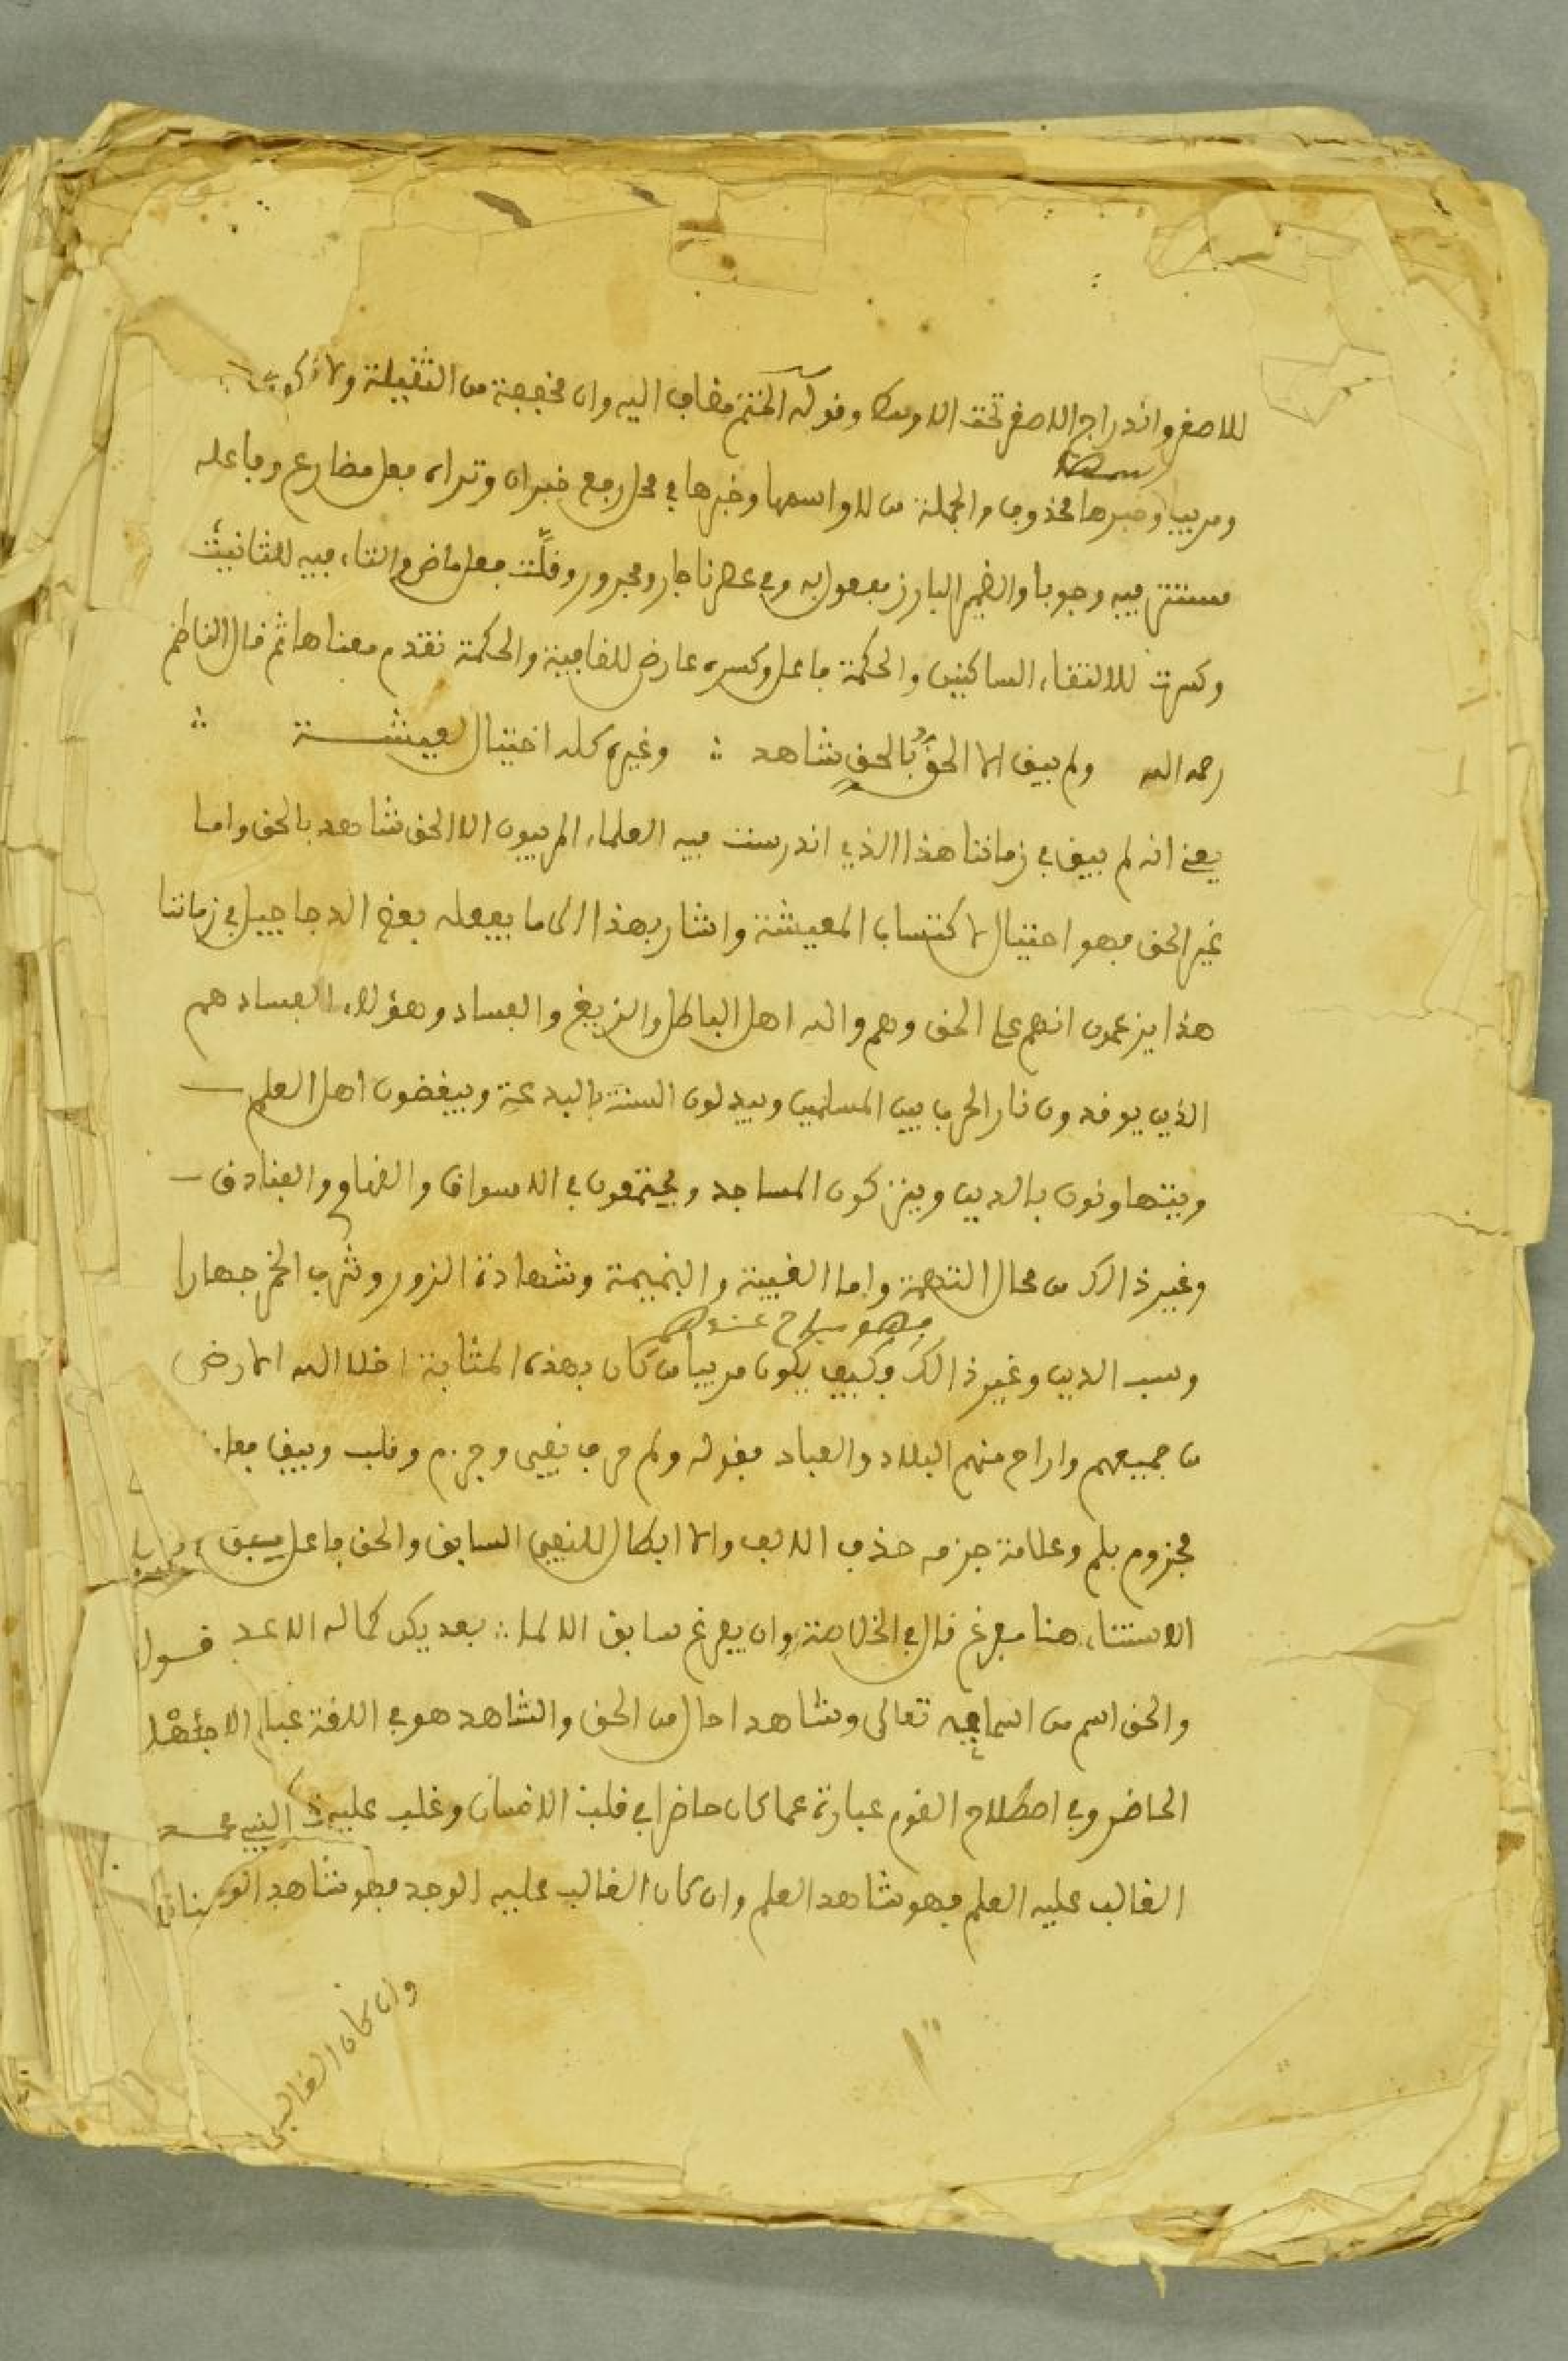 للاصغر واندراج الاصغر تحت الاوسط وقوله الختم مضاف اليه وان مخففة من الثقيلة ولا
ومربيا وخبرها محذوف والجملة من لا واسمها وخبرها في محل رفع خبر ان وتراه فعل مضارع وفاعله
مستتر فيه وجوبا والضمير البارز مفعول به وفي عصرنا جار ومجرور وقلّت فعل ماض والتاء فيه للتانيث
وكسرت للالتقاء الساكنين والحكمة فاعل وكسره عارض للقافية والحكمة تقدم معناها ثم قال الناظم
رحمه الله ولم يبق الا الحقُّ بالحق شاهد ∴ وغيره كله احتيال لعيشة ∴
يعني انه لم يبق في زماننا هذا الذي اندرست فيه العلماء المربيون الا الحق شاهد بالحق واما
غير الحق فهو احتيال لاكتساب المعيشة واشار بهذا الى ما يفعله بعض الدجاجيل في زماننا
هذا يزعمون انهم على الحق وهم والله اهل الباطل والزيغ والفساد وهؤلاء الفساد هم
الذين يوقدون نار الحرب بين المسلمين ويبدلون السنة بالبدعة ويبغضون اهل العلم
ويتهاونون بالدين ويتركون المساجد ويجتمعون في الاسواق والقهاوي والفنادق
وغير ذالك من محال التهمة واما الغيبة والنميمة وشهادة الزور وشرب الخمر جهارا
فهو مباح عندهم
وسب الدين وغير ذالك وكيف يكون مربيا من كان بهذه المثابة اخلا الله الارض
من جميعهم واراح منهم البلاد والعباد فقوله ولم حرف نفي وجزم وقلب ويبق فعل
مجزوم بلم وعلامة جزمه حذف الالف والا ابطال للنفي السابق والحق فاعل يبق
الاستثناء هنا مفرغ قال في الخلاصة وان يفرغ سابق الا لما ∴ بعد يكن كما لو الا عد
والحق اسم من اسمائه تعالى وشاهد احال من الحق والشاهد هو في اللغة عبا
الحاضر وفي اصطلاح القوم عبارة عما كان حاضرا في قلب الانسان وغلب عليه
الغالب عليه العلم فهو شاهد العلم وان كان الغالب عليه الوجد فهو شاهد
وان كان الغالب